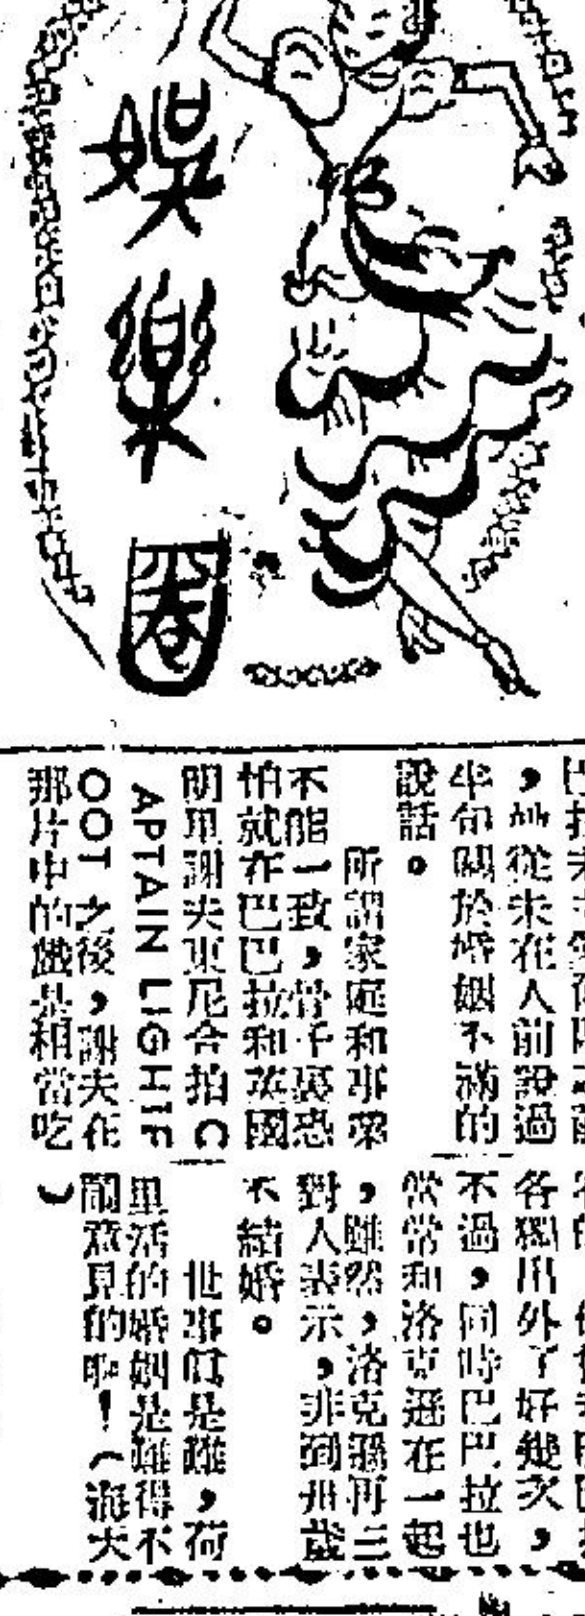 娛樂圈
，她從未在人前說過
半句關於婚姻不滿的
說話。
所謂家庭和事業
不能一致，骨子裏恐
怕就在巴巴拉和英國
明星謝夫東尼合拍 C
APTAIN LIGHTF
OOT 之後，謝夫在
那片中的戲是相當吃
各獨出外了好幾次，
不過，同時巴巴拉也
常常和洛克遜在一起
，雖然，洛克遜再三
對人表示，非到卅歲
不結婚。
世事眞是難，荷
里活的婚姻是難得不
鬧意見的啊！（海天
）